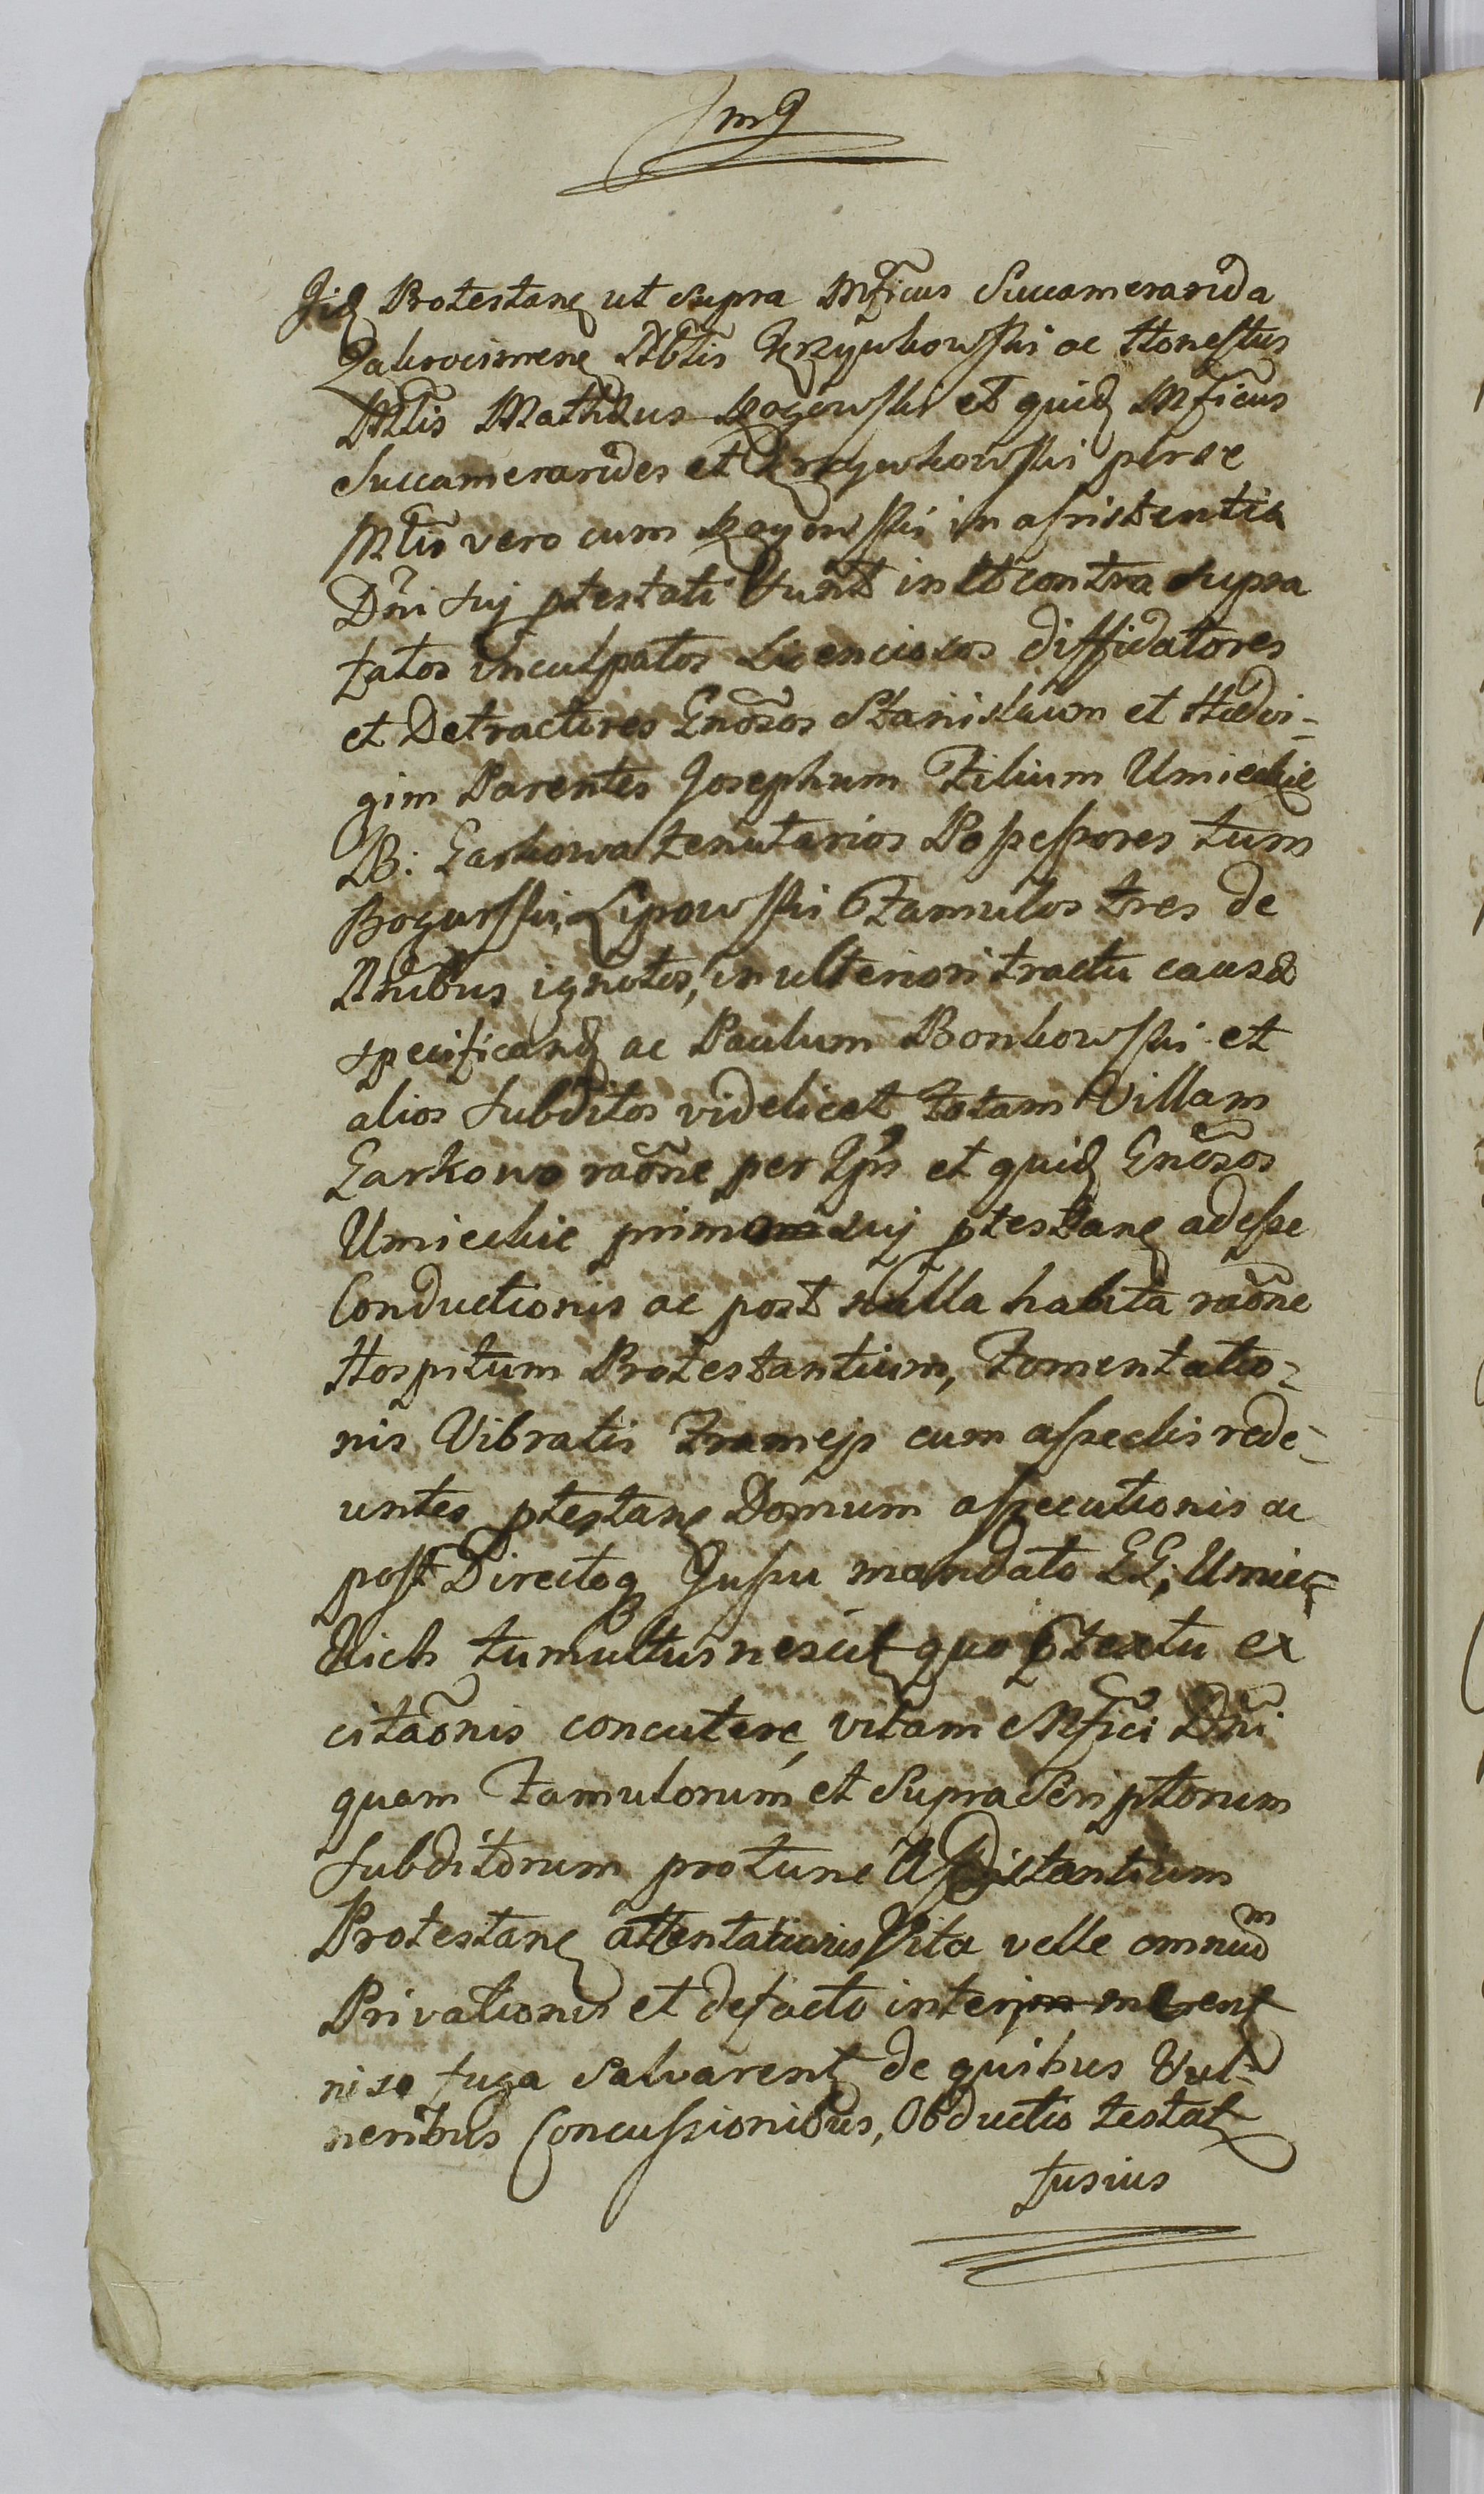 Protestanꝭ ut Supra Mficus Succamerarida
Nblis Krzywkowski ac Honestus
Mathæus et quidꝫ Mficus
Succamerarides et Krzywkowski per se
vero cum in assistentia
Dñi sui ptestati sunt in et contra supra
tatos inculpatos Licenciosos diffidatores
et Detractores Gnosos Stanislaum et Hedvi-
gim Parentes Josephum Filium Umieckie
B: Garkowa tenutarios Possessores tum
Bogurski, Lipowski Famulos tres de
Nnibus ignotos, in ulteriori tractu causæ
specificandꝫ ac Paulum Bonkowski et
alios subditos videlicet totam Villam
Garkowo raõne per et quidꝫ Gnõsos
Umieckie sui ptestanꝭ adesse
Conductionis ac post nulla habita raõne
Hospitum Protestantium, Fomentatio-
nis Vibratis Frameis cum asseclis rede-
untes ptestanꝭ Domum assecutionis ac
post Directoqꝫ Jussu mandato GG, Umiec-
kich tumultus nescit quo ptextu ex
citaõnis concutere, vitam Mfici Dñi
quam Famulorum et Supra Scriptorum
subditorum pro tunc Assistantium
Protestanꝭ attentationis Vita velle omnium
Privationis et de facto interimerent
nise fuga salvarent de quibus Vul-
neribus Concussionibus, Obductio testat
fusius